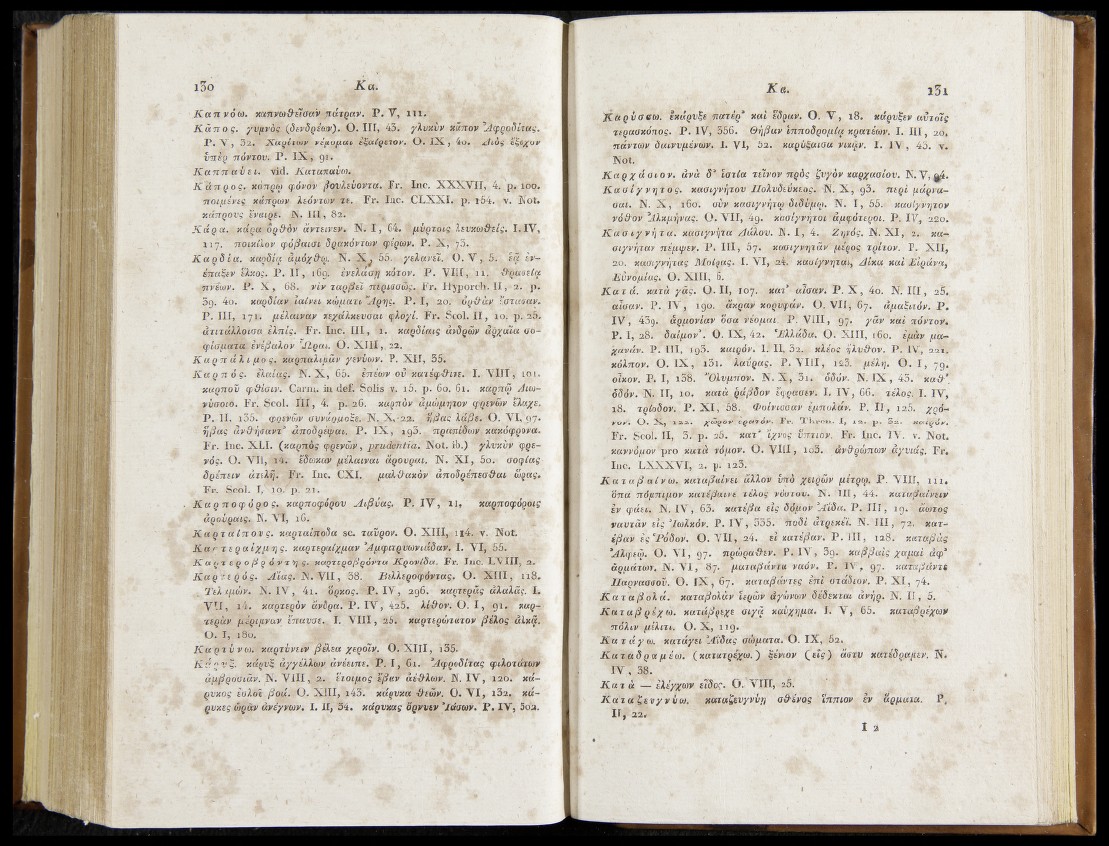 130 Κα.
Καπνόω. καπνωθεῖσαν πάτραν. P. V, 111.
Κᾶπος. γυμνὸς (δενδρέων). O. III, 43. γλυκὺν κᾶπον Ἀφροδίτας.
P. V, 32. Χαρίτων νέμομαι ἐξαίρετον. O. IX, 40. Διὸς ἔξοχον
ὑπὲρ πόντου. P. IX, 91.
Καππαύει. vid. Καταπαύω.
Κάπρος. κάπρῳ φόνον βουλεύοντα. Fr. Inc. XXXVII, 4. p. 100.
ποιμένες κάπρων λεόντων τε. Fr. Inc. CLXXI. p. 154. v. Not.
κάπρους ἔναιρε. N. III, 82.
Κάρα. κάρα ὀρθὸν ἄντεινεν. N. I, 64. μύρτοις λευκωθείς. I. IV,
117. ποικίλον φόβαισι δρακόντων φέρων. P. X, 75.
Καρδία. καρδίᾳ ἀμόχθῳ. N. X, 55. γελανεῖ. O. V, 5. ἑᾷ ἐν-
έπαξεν ἕλκος. P. II, 169. ἐνελάσῃ κότον. P. VIII, 11. θρασεῖα
πνέων. P. X, 68. νιν ταρβεῖ περισσῶς. Fr. Hyporch. II, 2. p.
39. 40. καρδίαν ἰαίνει κώματι Ἄρης. P. I, 20. ὀρθὰν ἔστασαν.
P. III, 171. μέλαιναν κεχάλκευσαι φλογί. Fr. Scol. II, 10. p. 25.
ἀτιτάλλοισα ἐλπίς. Fr. Inc. III, 1. καρδίαις ἀνδρῶν ἀρχαῖα σο-
φίσματα ἐνέβαλον Ὧραι. O. XIII, 22.
Καρπάλιμος. καρπαλιμᾶν γενύων. P. XII, 35.
Καρπός. ἐλαίας. N. X, 65. ἐπέων οὐ κατέφθινε. I. VIII, 101.
καρποῦ φθίσιν. Carm. in def. Solis v. 15. p. 60. 61. καρπῷ Διω-
νύσοιο. Fr. Scol. III, 4. p. 26. καρπὸν ἀμώμητον φρενῶν ἔλαχε.
P. II. 135. φρενῶν συνάρμοξε. N. X, 22. ἥβας λάβε. O. VI, 97.
ἥβας ἀνθήσαντ' ἀποδρέψαι. P. IX, 193. πραπίδων κακόφρονα.
Fr. Inc. XLI. (καρπὸς φρενῶν, prudentia. Not. ib.) γλυκὺν φρε-
νός. O. VII, 14. ἔδωκαν μέλαιναι ἄρουραι. N. XI, 50. σοφίας
δρέπειν ἀτελῆ. Fr. Inc. CXI. μαλθακὸν ἀποδρέπεσθαι ὥρας.
Fr. Scol. I, 10. p. 21.
Καρποφόρος. καρποφόρου Λιβύας. P. IV, 11. καρποφόροις
ἀρούραις. N. VI, 16.
Καρταίπους. καρταίποδα sc. ταῦρον. O. XIII, 114. v. Not.
Καρτεραίχμης. καρτεραίχμαν Ἀμφιτρυωνιάδαν. I. VI, 55.
Καρτεροβρόντης. καρτεροβρόντα Κρονίδα. Fr. Inc. LVIII, 2.
Καρτερός. Αἴας. N. VII, 38. Βελλεροφόντας. O. XIII, 118.
Τελαμών. N. IV, 41. ὅρκος. P. IV, 296. καρτερᾶς ἀλαλᾶς. I.
VII, 14. καρτερὸν ἄνδρα. P. IV, 425. λίθον. O. I, 91. καρ-
τερὰν μέριμναν ἔπαυσε. I. VIII, 25. καρτερώτατον βέλος ἀλκᾷ.
O. I, 180.
Καρτύνω. καρτύνειν βέλεα χεροῖν. O. XIII, 135.
Κάρυξ. κάρυξ ἀγγέλλων ἀνέειπε. P. I, 61. Ἀφροδίτας φιλοτάτων
ἀμβροσιᾶν. N. VIII, 2. ἕτοιμος ἔβαν ἀέθλων. N. IV, 120. κά-
ρυκος ἐσλοῦ βοά. O. XIII, 143. κάρυκα θεῶν. O. VI, 132. κά-
ρυκες ὡρᾶν ἀνέγνων. I. II, 34. κάρυκας ὄρνυεν Ἰάσων. P. IV, 302.
Κα. 131
Καρύσσω. ἐκάρυξε πατέρ' καὶ ἕδραν. O. V, 18. κάρυξεν αὐτοῖς
τερασκόπος. P. IV, 356. Θήβαν ἱπποδρομίᾳ κρατέων. I. III, 20.
πάντων δαινυμένων. I. VI, 52. καρύξαισα νικᾷν. I. IV, 43. v.
Not.
Καρχάσιον. ἀνὰ δ' ἱστία τεῖνον πρὸς ζυγὸν καρχασίου. N. V, 94.
Κασίγνητος. κασιγνήτου Πολυδεύκεος. N. X, 93. περὶ μάρνα-
σαι. N. X, 160. σὺν κασιγνήτῳ διδύμῳ. N. I, 55. κασίγνητον
νόθον Ἀλκμήνας. O. VII, 49. κασίγνητοι ἀμφότεροι. P. IV, 220.
Κασιγνήτα. κασιγνήτα Δάλου. N. I, 4. Ζηνός. N. XI, 2. κα-
σιγνήταν πέμψεν. P. III, 57. κασιγνητᾶν μέρος τρίτον. P. XII,
20. κασιγνήτας Μοίρας. I. VI, 24. κασίγνηται, Δίκα καὶ Εἰράνα,
Εὐνομίας. O. XIII, 6.
Κατά. κατὰ γᾶς. O. II, 107. κατ' αἶσαν. P. X, 40. N. III, 25.
αἶσαν. P. IV, 190. ἄκραν κορυφάν. O. VII, 67. ἁμαξιτόν. P.
IV, 439. ἁρμονίαν ὅσα νέομαι. P. VIII, 97. γᾶν καὶ πόντον.
P. I, 28. δαίμον'. O. IX, 42. Ἑλλάδα. O. XIII, 160. ἐμὰν μα-
χανάν. P. III, 193. καιρόν. I. II, 32. κλέος ἦλυθον. P. IV, 221.
κόλπον. O. IX, 131. λαύρας. P. VIII, 123. μέλη. O. I, 79.
οἶκον. P. I, 138. Ὄλυμπον. N. X, 31. ὁδόν. N. IX, 43. καθ'
ὁδόν. N. II, 10. κατὰ ῥάβδον ἔφρασεν. I. IV, 66. τέλος. I. IV,
18. τρίοδον. P. XI, 58. Φοίνισσαν ἐμπολάν. P. II, 125. χρό-
νον. O. X, 122. χῶρον ἐρατόν. Fr. Thren. I, 12. p. 32. καιρόν.
Fr. Scol. II, 3. p. 25. κατ' ἴχνος ὕπτιον. Fr. Inc. IV. v. Not.
καννόμον pro κατὰ νόμον. O. VIII, 103. ἀνθρώπων ἀγυιάς. Fr.
Inc. LXXXVI, 2. p. 123.
Καταβαίνω. καταβαίνει ἄλλον ὑπὸ χειρῶν μέτρῳ. P. VIII, 111.
ὄπα πόμπιμον κατέβαινε τέλος νόστου. N. III, 44. καταβαίνειν
ἐν φάει. N. IV, 63. κατέβα εἰς δόμον Ἀΐδα. P. III, 19. ἄωτος
ναυτᾶν εἰς Ἰωλκόν. P. IV, 335. ποδὶ ἀτρεκεῖ. N. III, 72. κατ-
έβαν ἐς Ῥόδον. O. VII, 24. εἰ κατέβαν. P. III, 128. καταβὰς
Ἀλφεῷ. O. VI, 97. πρώραθεν. P. IV, 39. καββαὶς χαμαὶ ἀφ'
ἁρμάτων. N. VI, 87. ματαβάντα ναόν. P. IV, 97. καταβάντε
Παρνασσοῦ. O. IX, 67. καταβάντες ἐπὶ στάδιον. P. XI, 74.
Καταβολά. καταβολὰν ἱερῶν ἀγώνων δέδεκται ἀνήρ. N. II, 5.
Καταβρέχω. κατάβρεχε σιγᾷ καύχημα. I. V, 65. καταβρέχων
πόλιν μέλιτι. O. X, 119.
Κατάγω. κατάγει Ἀΐδας σώματα. O. IX, 52.
Καταδραμέω. (κατατρέχω.) ξένιον (εἰς) ἄστυ κατέδραμεν. N.
IV, 38.
Κατὰ — ἐλέγχων εἶδος. O. VIII, 25.
Καταζευγνύω. καταζευγνύῃ σθένος ἵππιον ἐν ἅρματα. P.
II, 22.
I 2